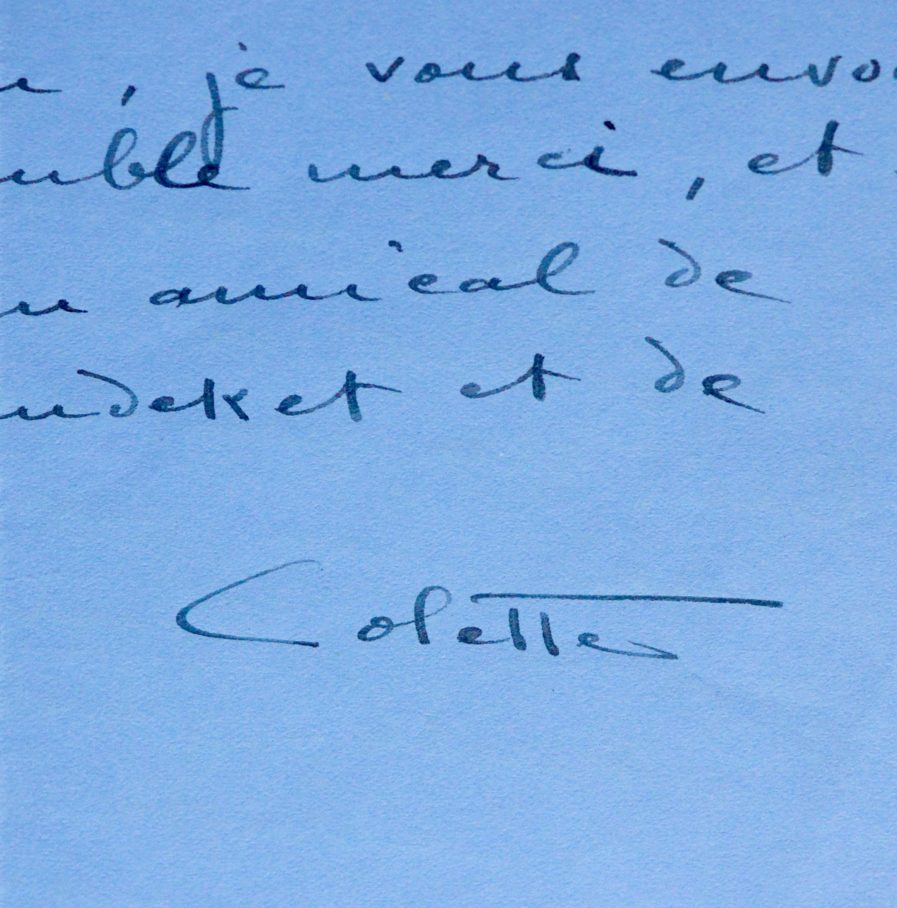 , je vous envo
uble merci, et
amical de
udeket et de
Colette